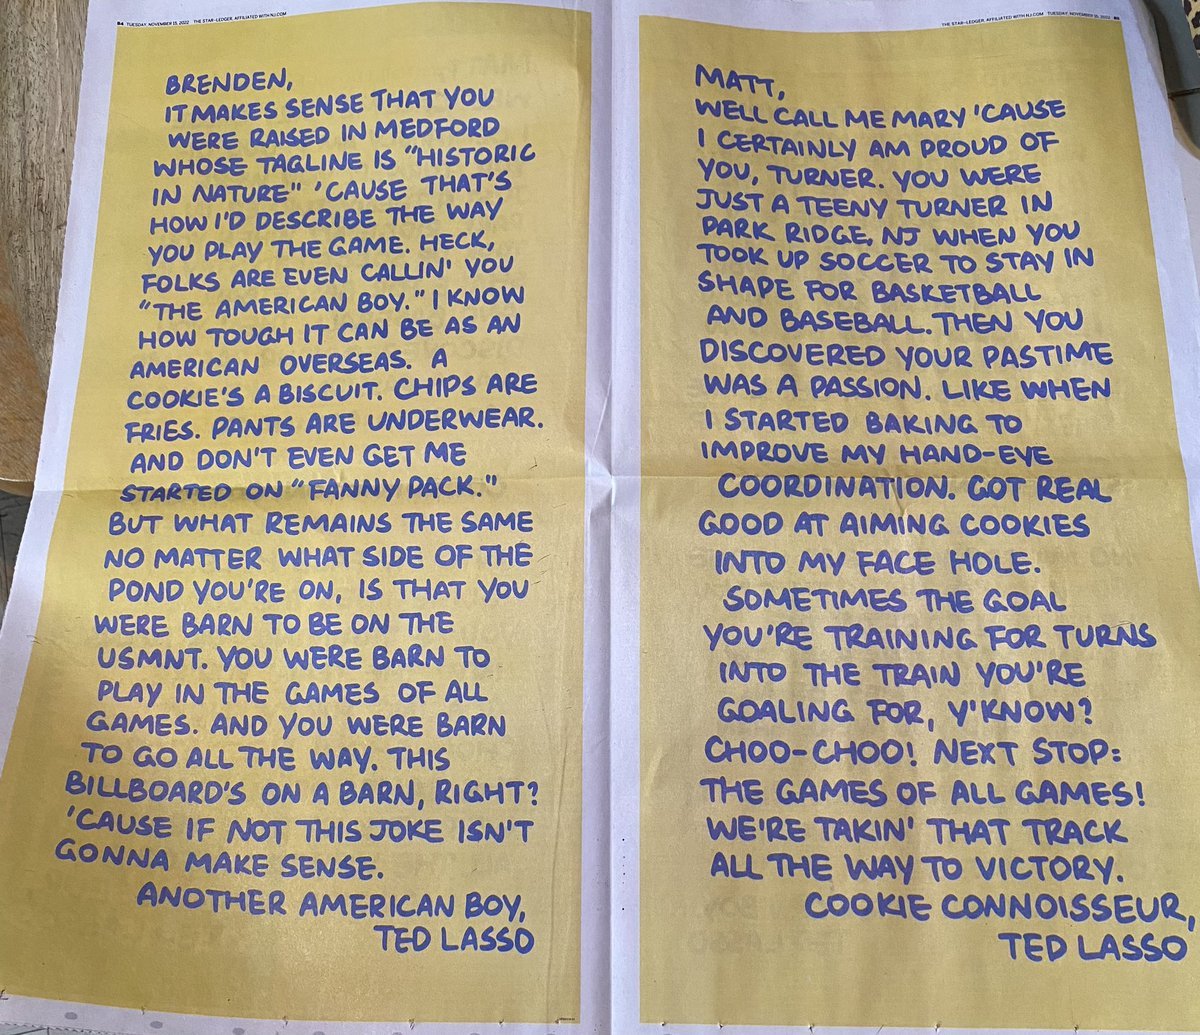 B4 TUESDAY, NOVEMBER 15, 2022 THE STAR-LEDGER, AFFILIATED WITH NJ.COM
BRENDEN,
IT MAKES SENSE THAT YOU
WERE RAISED IN MEDFORD
WHOSE TAGLINE IS "HISTORIC
IN NATURE" 'CAUSE THAT'S
HOW I'D DESCRIBE THE WAY
YOU PLAY THE GAME. HECK,
FOLKS ARE EVEN CALLIN' YOU
"THE AMERICAN BOY." I KNOW
HOW TOUGH IT CAN BE AS AN
AMERICAN OVERSEAS. A
COOKIE'S A BISCUIT. CHIPS ARE
FRIES. PANTS ARE UNDERWEAR.
AND DON'T EVEN GET ME
STARTED ON "FANNY PACK."
BUT WHAT REMAINS THE SAME
NO MATTER WHAT SIDE OF THE
POND YOU'RE ON, IS THAT YOU
WERE BARN TO BE ON THE
USMNT. YOU WERE BARN TO
PLAY IN THE GAMES OF ALL
GAMES. AND YOU WERE BARN
TO GO ALL THE WAY. THIS
BILLBOARD'S ON A BARN, RIGHT?
'CAUSE IF NOT THIS JOKE ISN'T
GONNA MAKE SENSE.
ANOTHER AMERICAN BOY,
TED LASSO
THE STAR-LEDGER, AFFILIATED WITH NJ.COM TUESDAY, NOVEMBER 15, 2022
MATT,
WELL CALL ME MARY 'CAUSE
I CERTAINLY AM PROUD OF
YOU, TURNER. YOU WERE
JUST A TEENY TURNER IN
PARK RIDGE, NJ WHEN YOU
TOOK UP SOCCER TO STAY IN
SHAPE FOR BASKETBALL
AND BASEBALL. THEN YOU
DISCOVERED YOUR PASTIME
WAS A PASSION. LIKE WHEN
I STARTED BAKING TO
IMPROVE MY HAND-EYE
COORDINATION. GOT REAL
GOOD AT AIMING COOKIES
INTO MY FACE HOLE.
SOMETIMES THE GOAL
YOU'RE TRAINING FOR TURNS
INTO THE TRAIN YOU'RE
GOALING FOR, Y'KNOW?
CHOO-CHOO! NEXT STOP:
THE GAMES OF ALL GAMES!
WE'RE TAKIN' THAT TRACK
ALL THE WAY TO VICTORY.
COOKIE CONNOISSEUR,
TED LASSO